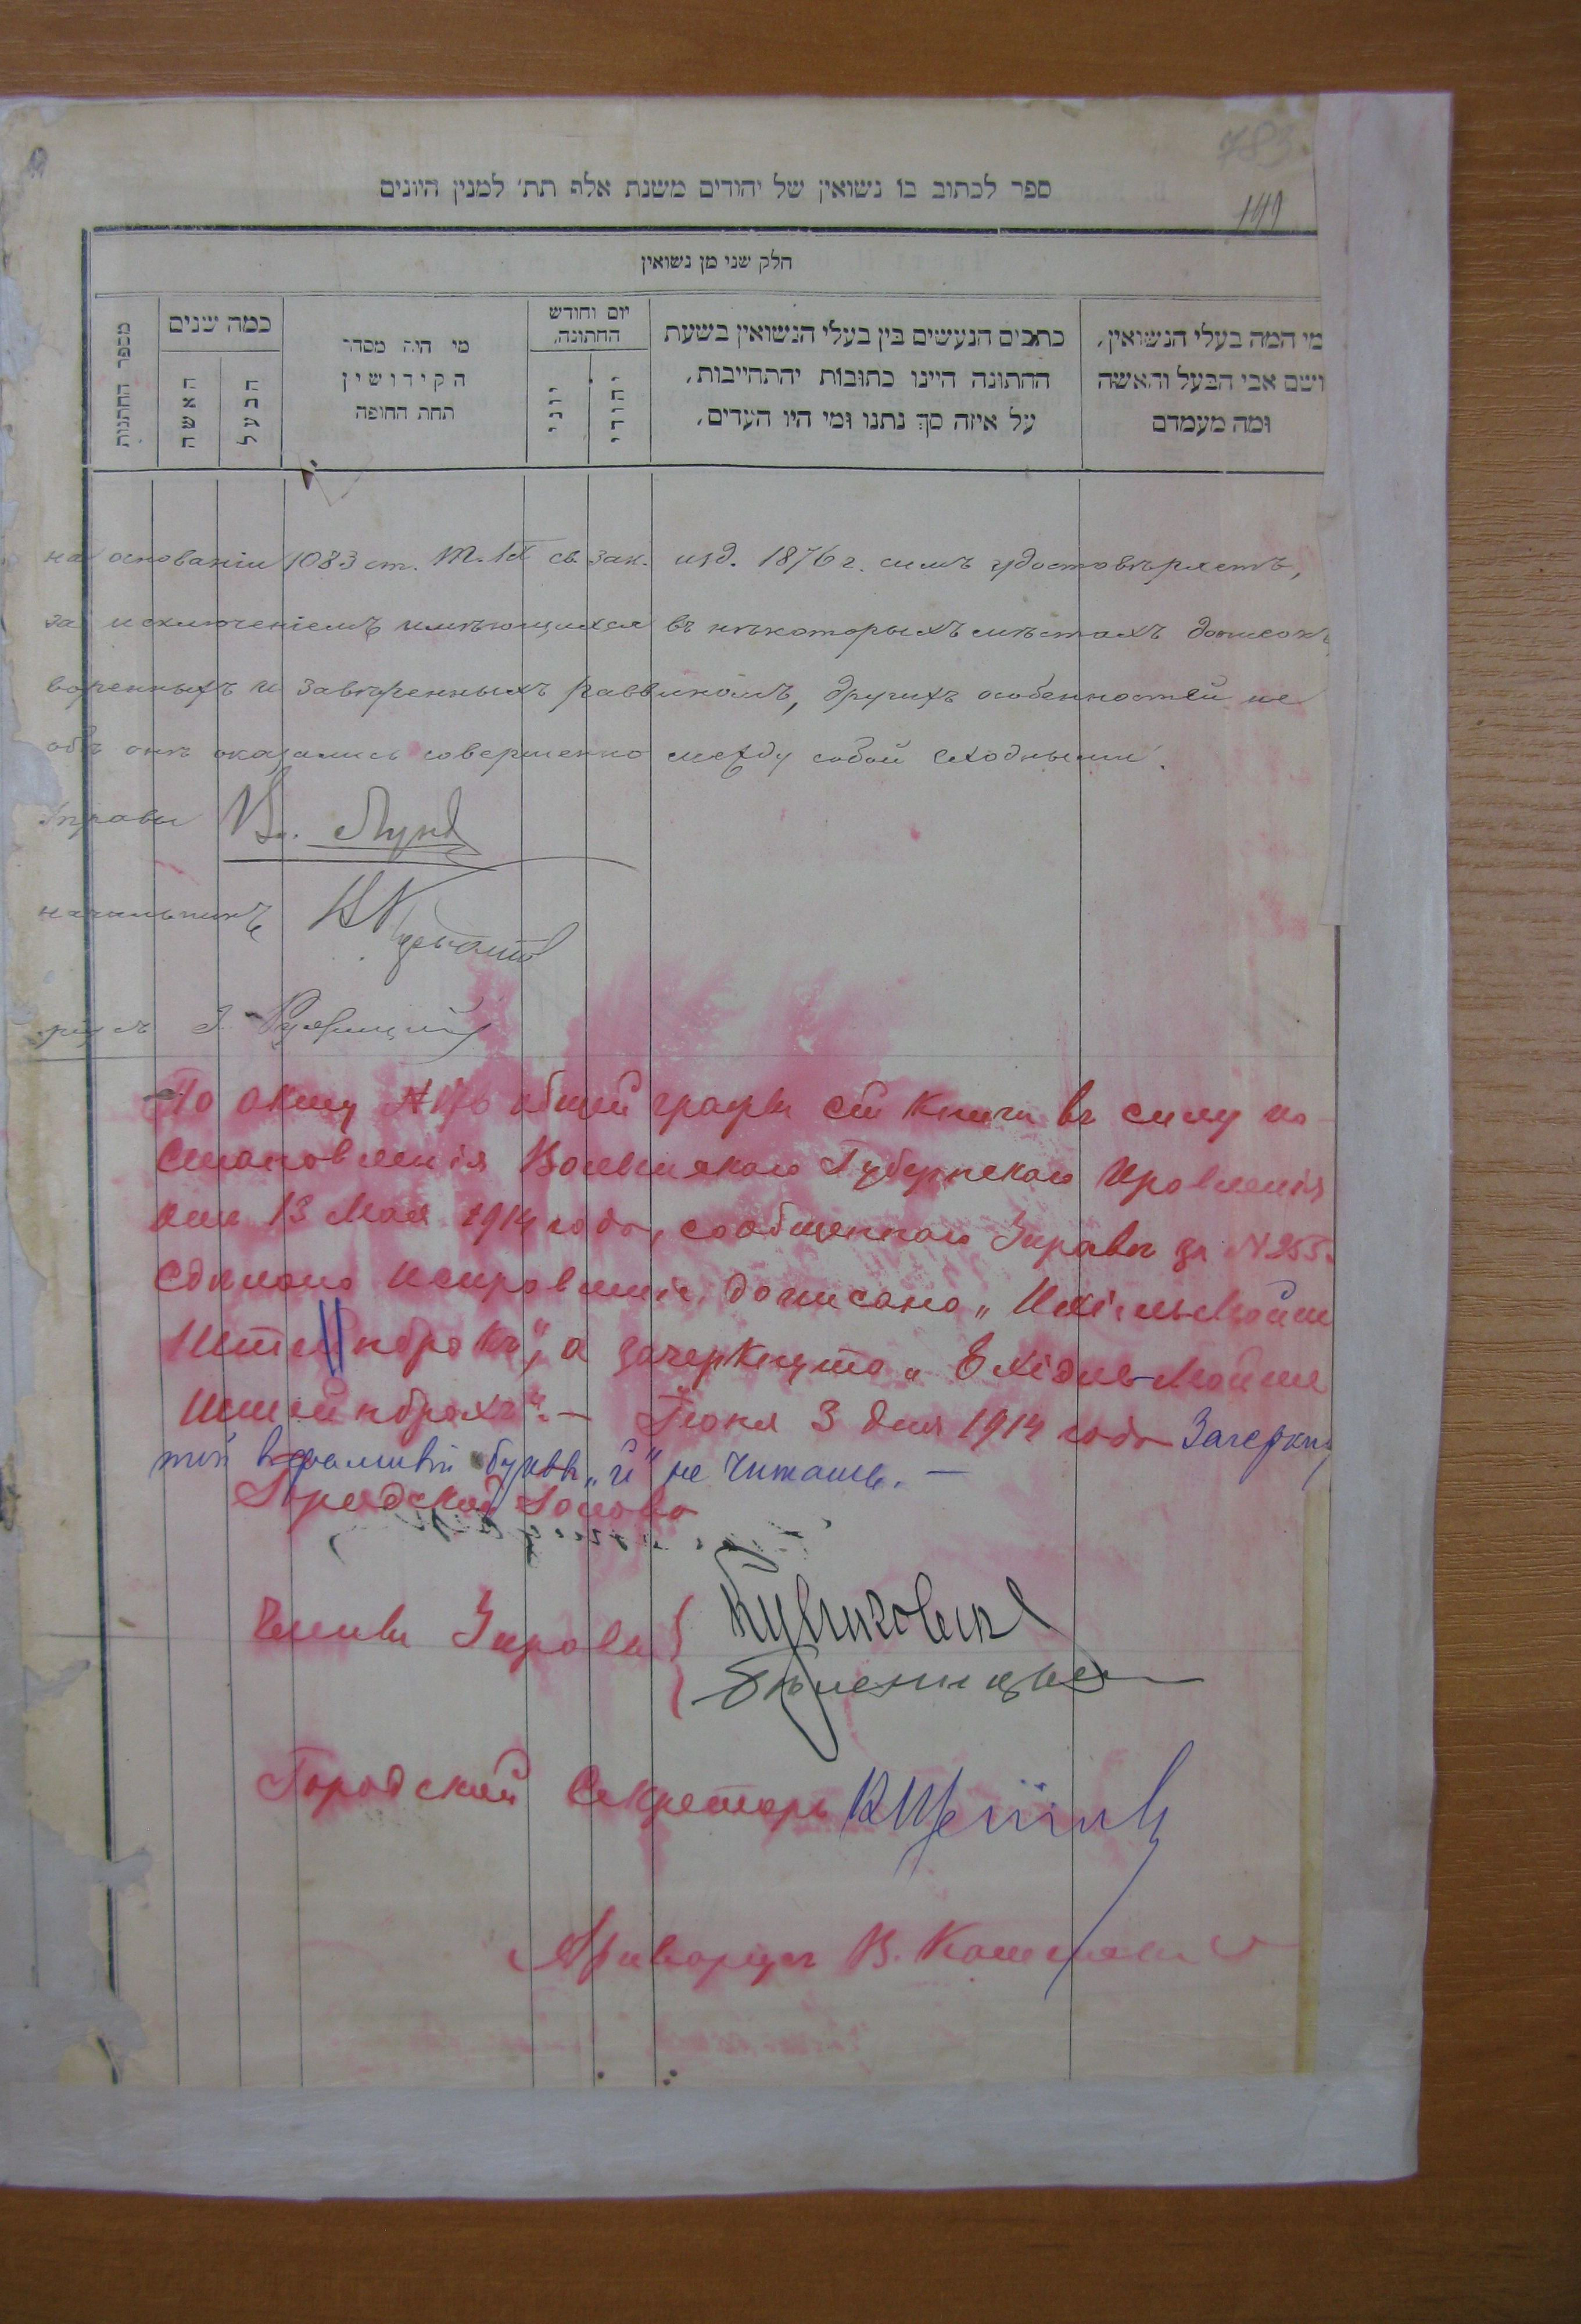 783
149
ספר לכתוב בו נשואין של יהודים משנת אלף תת׳ למנין היונים
חלק שני מן נשואין
מי המה בעלי הנשואין,
ושם אבי הבעל והאשה
ומה מעמדם
כתבים הנעשים בין בעלי הנשואין בשעת
החתונה היינו כתובות יהתחייבות,
על איזה סך נתנו ומי היו העדים,
יום וחודש
החתונה,
יהודי
יוני
מי היה מסדר
הקידושין
תחת החופה
כמה שנים
הבעל
האשה
מספר החתנות
на основаніи 1083 ст. т. IX св. зак. изд. 1876 г. симъ удостовѣряетъ,
за исключеніемъ имѣющихся въ нѣкоторыхъ мѣстахъ
воренныхъ и завѣренныхъ раввиномъ, другихъ особенностей не
онѣ оказались совершенно между собой сходными.
Управы
начальникъ
По акту № общей графы сей книги въ силу по-
становленія Волынскаго Губернскаго Правленія
13 Мая 1914 года, сообщеннаго Управѣ за №
сдѣлано исправленіе, дописано „
а зачеркнуто „
Штейнброхъ“. — Іюня 3 дня 1914 года Зачеркну
той в фамиліи буквы „й“ не читать. —
Городской Голова
Члены Управы
Городской Секретарь
Архиваріусъ В.